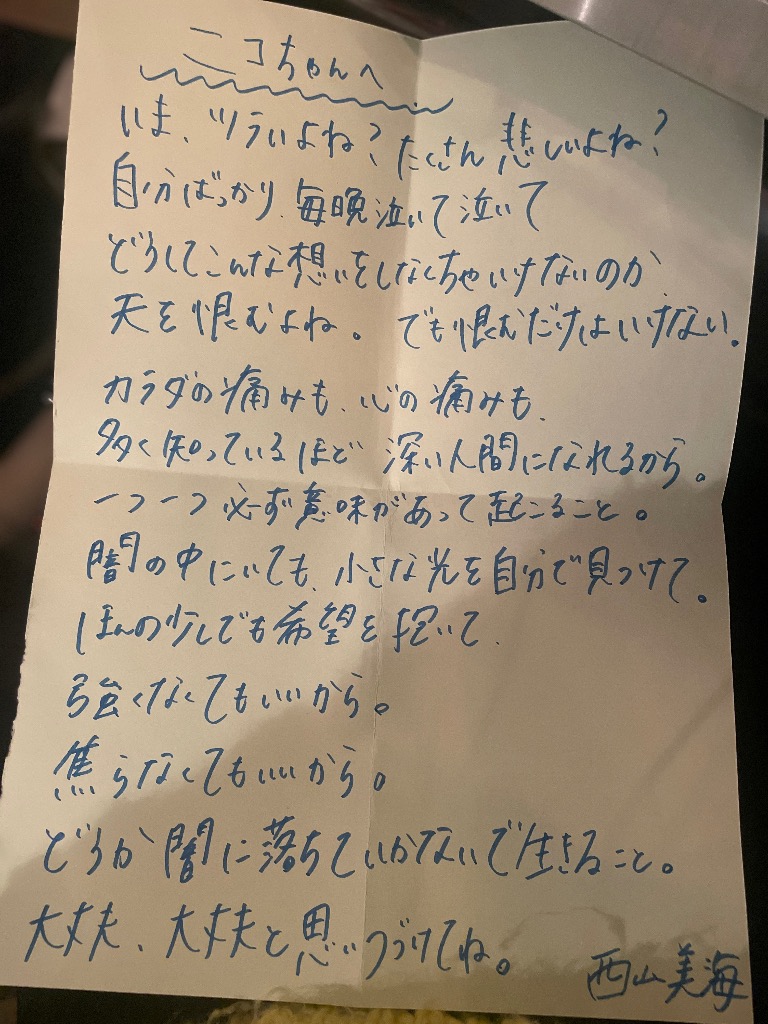 ニコちゃんへ
いま、ツラいよね?たくさん悲しいよね?
自分ばっかり、毎晩泣いて泣いて
どうしてこんな想いをしなくちゃいけないのか、
天を恨むよね。でも恨むだけはいけない。
カラダの痛みも、心の痛みも、
多く知っているほど深い人間になれるから。
一つ一つ必ず意味があって起こること。
闇の中にいても、小さな光を自分で見つけて。
ほんの少しでも希望を抱いて、
強くなくてもいいから。
焦らなくてもいいから。
どうか闇に落ちていかないで生きること。
大丈夫、大丈夫と思いつづけてね。
西山美海